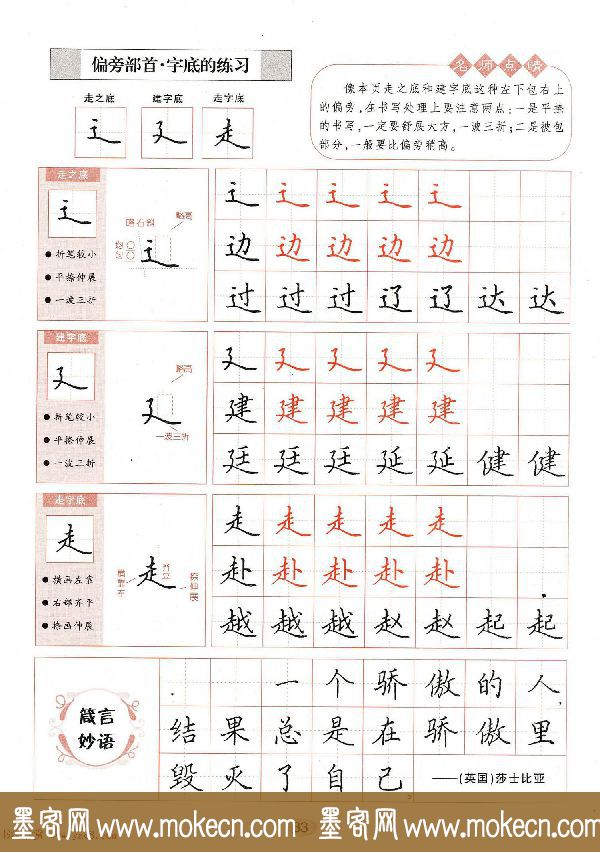 偏旁部首·字底的练习
走之底 建字底 走字底
辶 廴 走
名师点睛
像本页走之底和建字底这种左下包右上
的偏旁，在书写处理上要注意两点：一是平捺
的书写，一定要舒展大方，一波三折；二是被包
部分，一般要比偏旁稍高。
走之底
辶
折笔较小
平捺伸展
一波三折
略右斜
略高
辶
辶 辶 辶 辶 辶
边 边 边 边 边
过 过 过 辽 辽 达 达
建字底
廴
折笔较小
平捺伸展
一波三折
略高
廴
一波三折
廴 廴 廴 廴 廴
建 建 建 建 建
廷 廷 廷 延 延 健 健
走字底
走
横画左靠
右部齐平
捺画伸展
走
走 走 走 走 走
赴 赴 赴 赴 赴
越 越 越 赵 赵 起 起
箴言
妙语
一个骄傲的人
结果总是在骄傲里
毁灭了自己
——(英国)莎士比亚
33
墨客网 www.mokecn.com 墨客网 www.mokecn.com